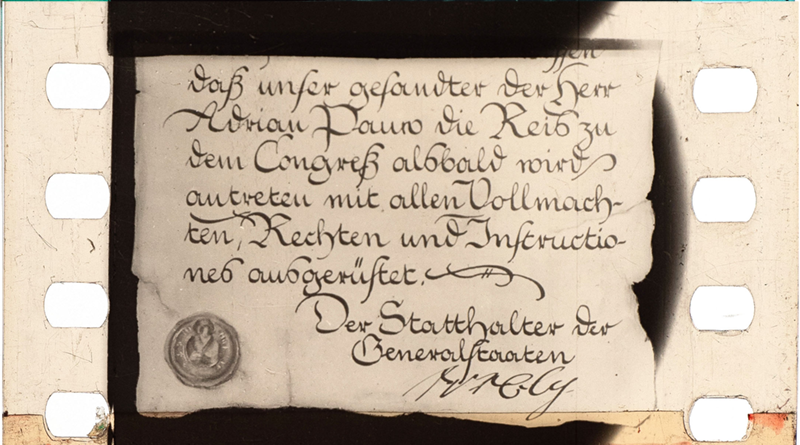 daß unser gesandter der Herr
Adrian Pauw die Reis zu
dem Congreß alsbald wird
antreten mit allen Vollmach-
ten, Rechten und Instructio-
nes ausgerüstet.
Der Statthalter der
Generalstaaten